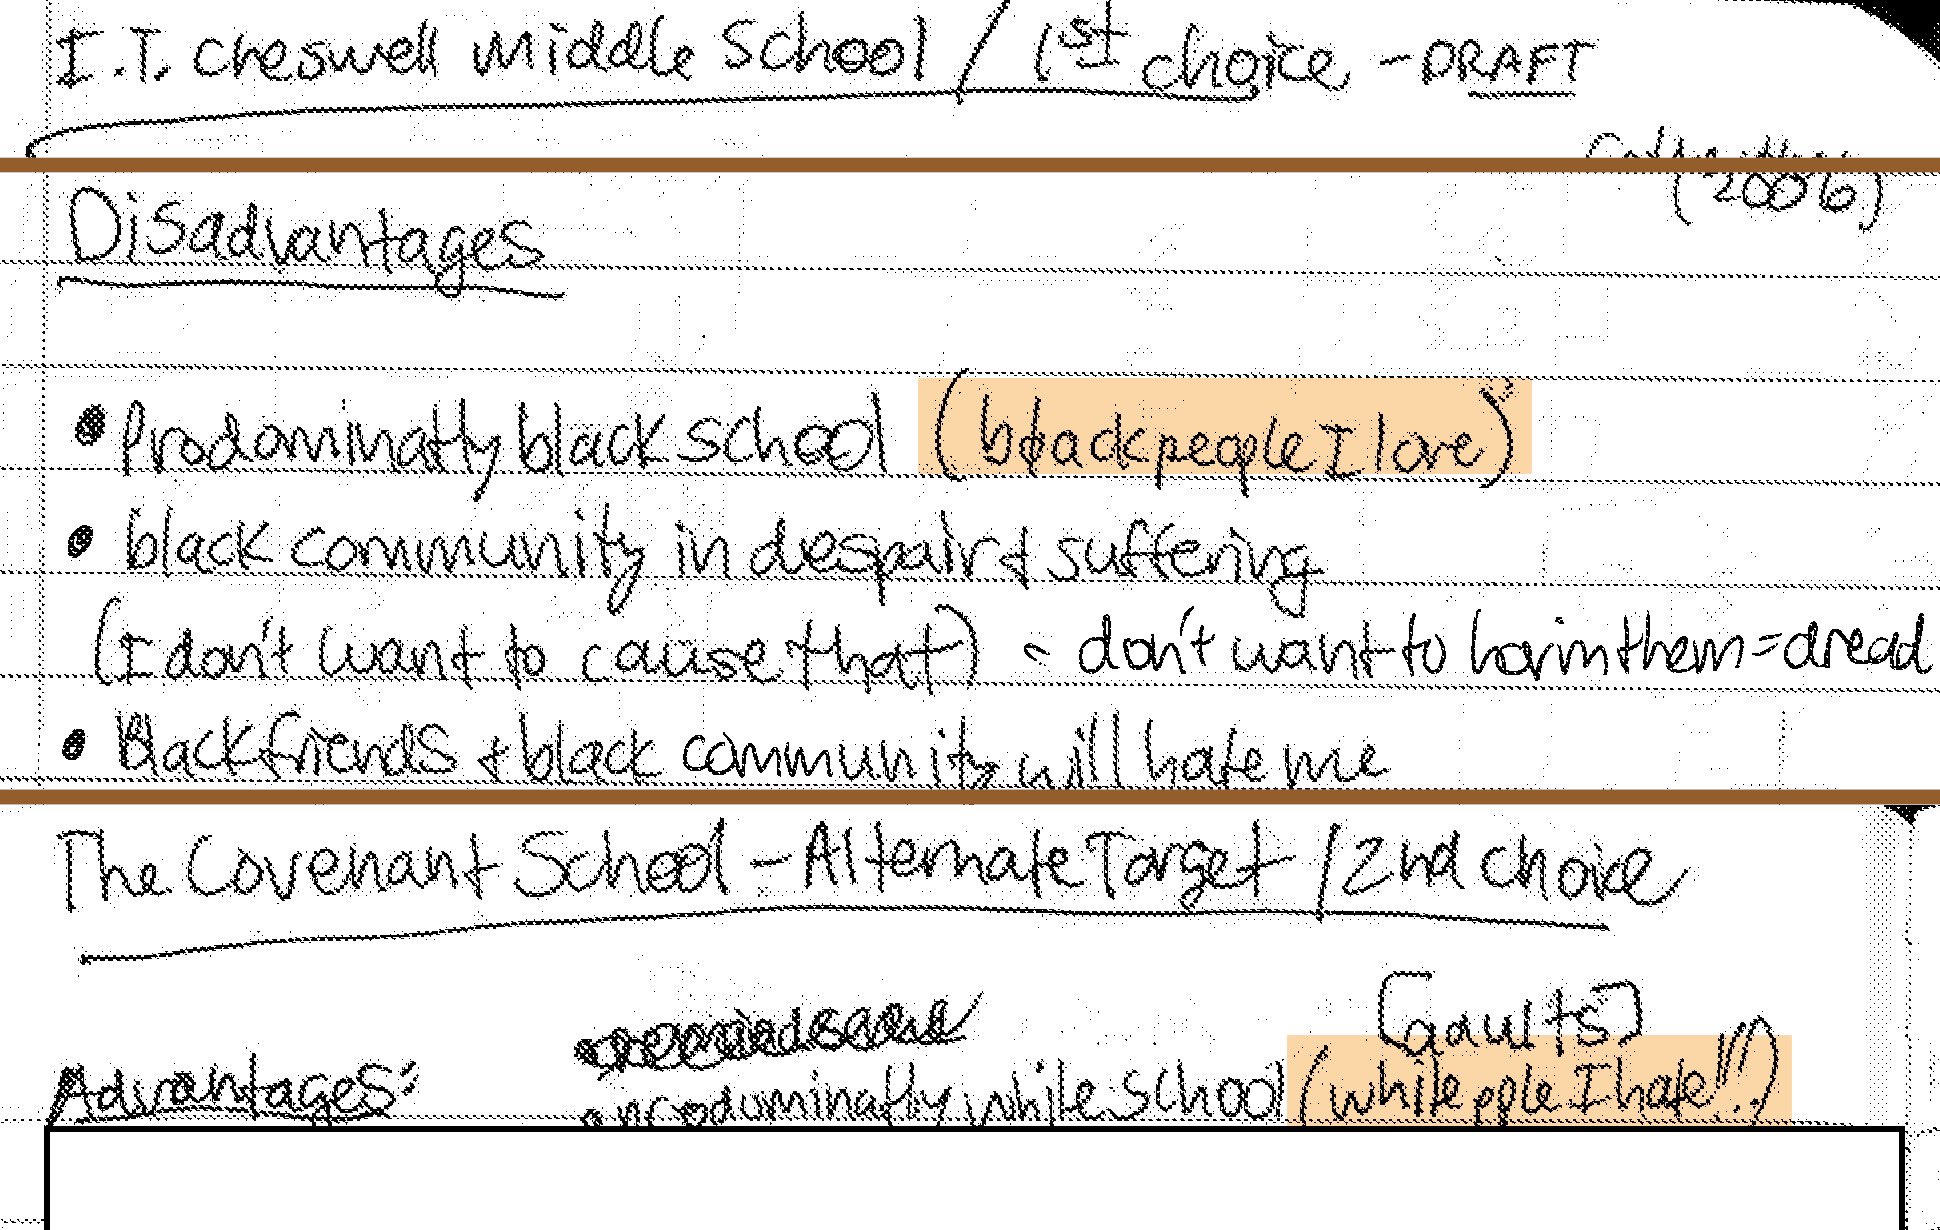 I.T. Creswell Middle School / 1st choice - DRAFT
(2006)
Disadvantages
• Prodominatly black school (black people I love)
• black community in despair & suffering
(I don't want to cause that) - don't want to harm them = dread
• black friends + black community will hate me
The Covenant School - Alternate Target / 2nd choice
[gaults]
Advantages: • prodominatly white school (white pple I hate!!)